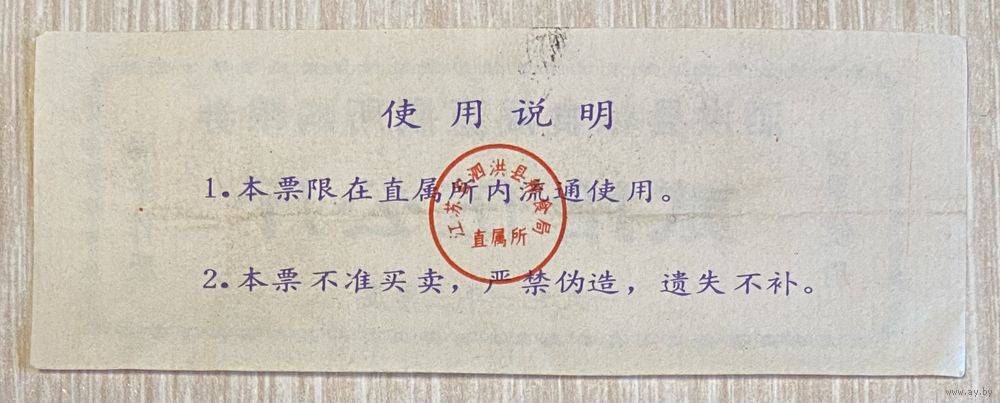 使用说明
1.本票限在直属所内流通使用。
江苏省泗洪县粮食局
直属所
2.本票不准买卖，严禁伪造，遗失不补。
www.ay.by